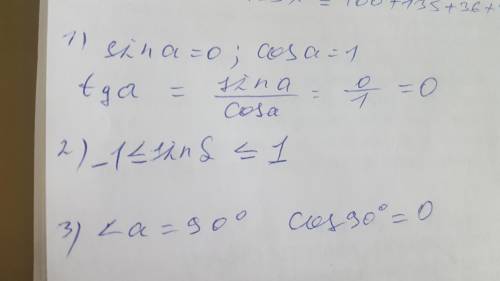 = 100+135+36+
1) sin a = 0 ; cos a = 1
tg a = sin a / cos a = 0/1 = 0
2) -1 ≤ sin δ ≤ 1
3) ∠a = 90° cos 90° = 0